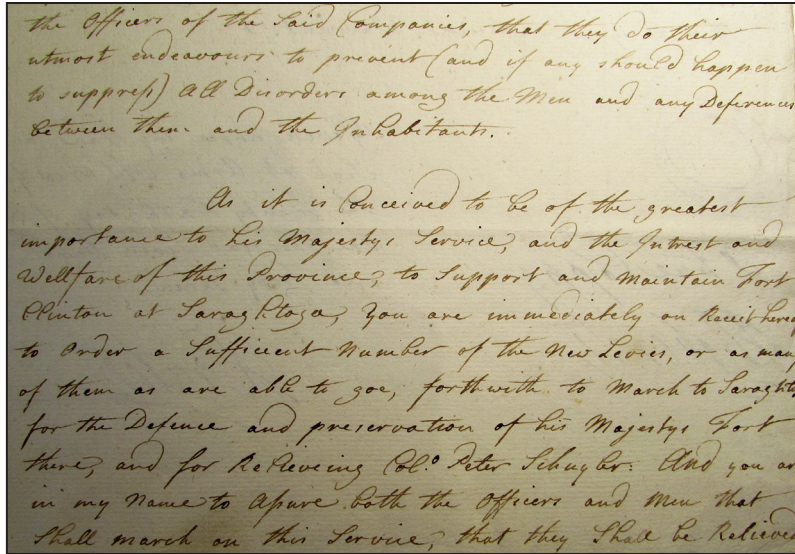 the Officers of the Said Companies, that they do their
utmost endeavours to prevent (and if any should happen
to suppress) All Disorders among the Men and any Deferences
between them and the Inhabitants.
As it is Conceived to be of the greatest
importance to his Majestys Service, and the Intrest and
Wellfare of this Province, to Support and maintain Fort
Clinton at Saraghtoga, You are immediately on Receit hereof
to Order a Sufficent Number of the New Levies, or as many
of them as are able to goe, forthwith to March to Saraghto
for the Defence and preservation of his Majestys Fort
there, and for Relieveing Col.o Peter Schuyler: And you are
in my Name to Assure both the Officers and Men that
Shall march on this Service, that they Shall be Relieved